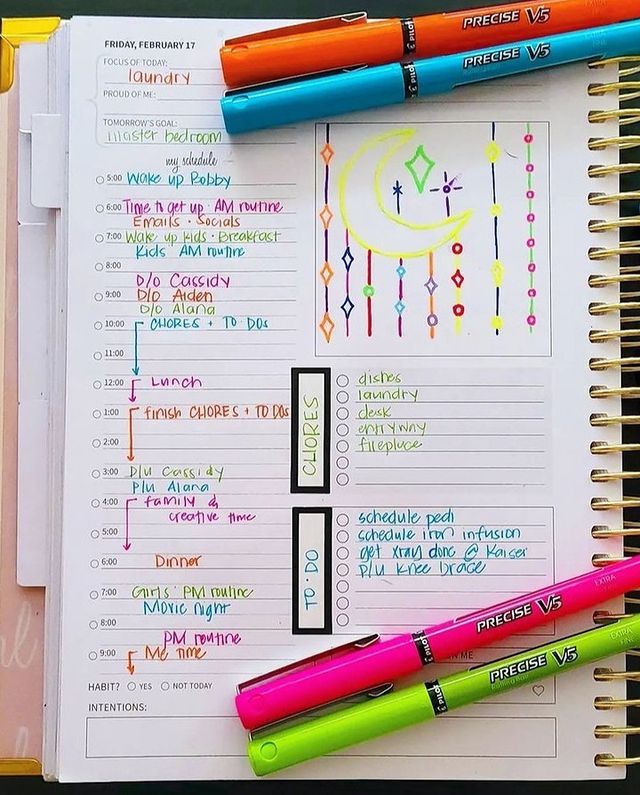 FRIDAY, FEBRUARY 17
FOCUS OF TODAY:
laundry
PROUD OF ME:
TOMORROW'S GOAL:
master bedroom
my schedule
5:00 Wake up Bobby
6:00 Time to get up · AM routine
Emails · Socials
7:00 Wake up kids · Breakfast
Kids AM routine
8:00
D/O Cassidy
9:00 D/O Aiden
D/O Alana
10:00 CHORES + TO DOs
11:00
12:00 Lunch
1:00 finish CHORES + TO DOs
2:00
3:00 P/U Cassidy
P/U Alana
4:00 family &
creative time
5:00
6:00 Dinner
7:00 Girls' PM routine
Movie night
8:00
PM routine
9:00 Me time
HABIT? YES NOT TODAY
INTENTIONS:
CHORES
dishes
laundry
desk
entryway
fireplace
TO·DO
schedule pedi
schedule iron infusion
get xray done @ Kaiser
P/U knee brace
PILOT PRECISE V5
PILOT PRECISE V5
PILOT PRECISE V5 EXTRA
PILOT PRECISE V5
ME